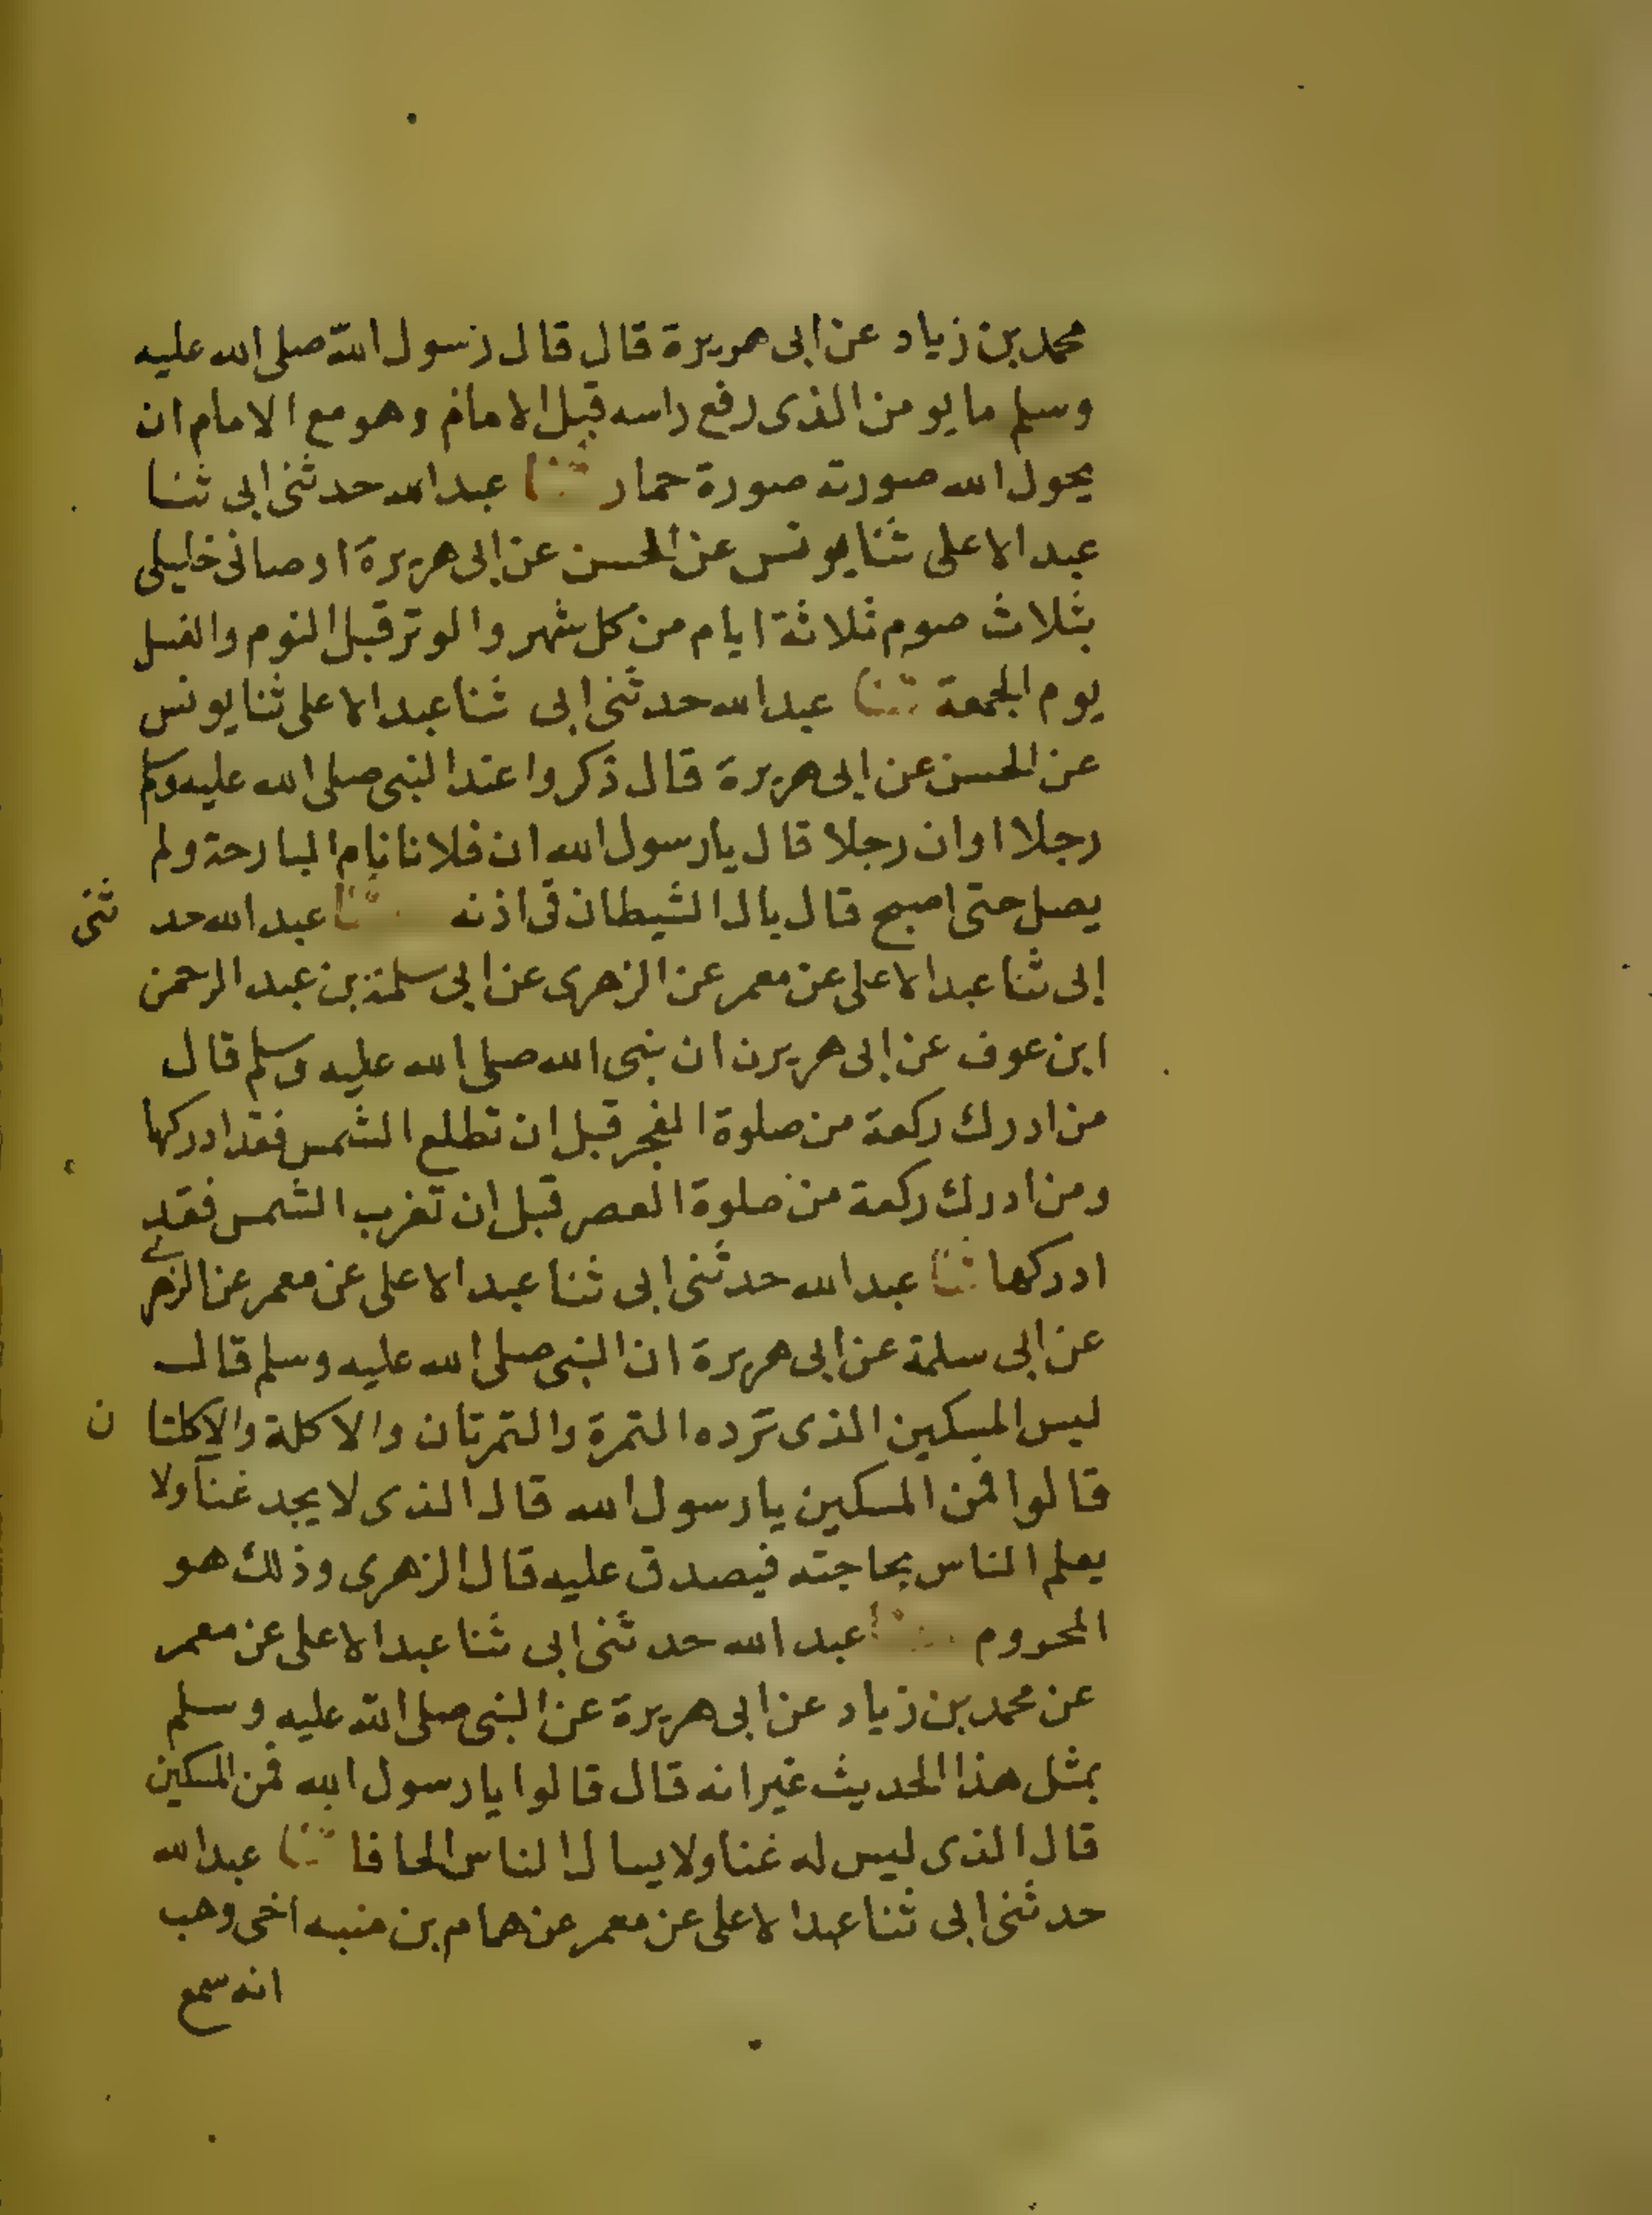 محمد بن زياد عن ابى هريرة قال قال رسول الله صلى الله عليه
وسلم ما يومن الذى رفع راسه قبل الامام وهو مع الامام ان
يحول الله صورته صورة حمار ثنا عبد الله حدثنى ابى ثنا
عبد الاعلى ثنا يونس عن الحسن عن ابى هريرة اوصانى خليلى
بثلاث صوم ثلاثة ايام من كل شهر والوتر قبل النوم والغسل
يوم الجمعة ثنا عبد الله حدثنى ابى ثنا عبد الاعلى ثنا يونس
عن الحسن عن ابى هريرة قال ذكروا عند النبى صلى الله عليه وسلم
رجلا او ان رجلا قال يا رسول الله ان فلانا نام البارحة ولم
يصل حتى اصبح قال بال الشيطان فى اذنه ثنا عبد الله حد ثنى
ابى ثنا عبد الاعلى عن معمر عن الزهرى عن ابى سلمة بن عبد الرحمن
ابن عوف عن ابى هريرن ان نبى الله صلى الله عليه وسلم قال
من ادرك ركعة من صلوة الفجر قبل ان تطلع الشمس فقد ادركها
ومن ادرك ركعة من صلوة العصر قبل ان تغرب الشمس فقد
ادركها ثنا عبد الله حدثنى ابى ثنا عبد الاعلى عن معمر عن الزهرى
عن ابى سلمة عن ابى هريرة ان النبى صلى الله عليه وسلم قال
ليس المسكين الذى ترده التمرة والتمرتان والاكلة والاكلتا ن
قالوا فمن المسكين يا رسول الله قال الذى لا يجد غنا ولا
يعلم الناس بحاجته فيصدق عليه قال الزهرى وذلك هو
المحروم ثنا عبد الله حدثنى ابى ثنا عبد الاعلى عن معمر
عن محمد بن زياد عن ابى هريرة عن النبى صلى الله عليه وسلم
بمثل هذا الحديث غير انه قال قالوا يا رسول الله فمن المسكين
قال الذى ليس له غنا ولا يسال الناس الحافا ثنا عبد الله
حدثنى ابى ثنا عبد الاعلى عن معمر عن همام بن منبه اخى وهب
انه سمع